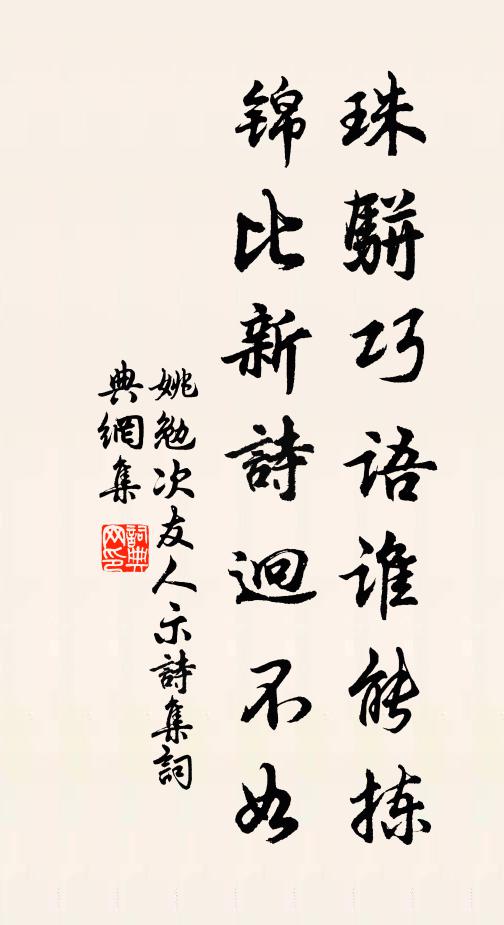 珠駢巧语谁能拣
锦比新詩迥不如
姚勉次友人示詩集詞
典網集
詞典
网印